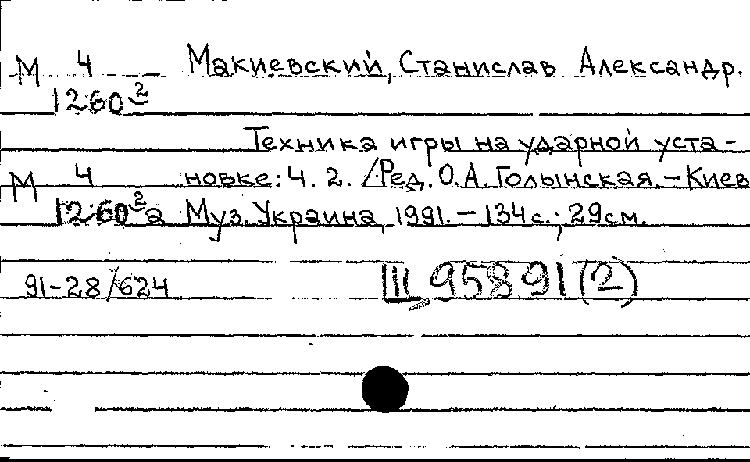 М 4 Макиевский, Станислав Александр.
1260²
Техника игры на ударной уста-
М 4 новке: Ч. 2. /Ред. О.А. Голынская. – Киев
1260²а Муз. Украина, 1991. – 134с.; 29см.
91-28/624 III 95891(2)